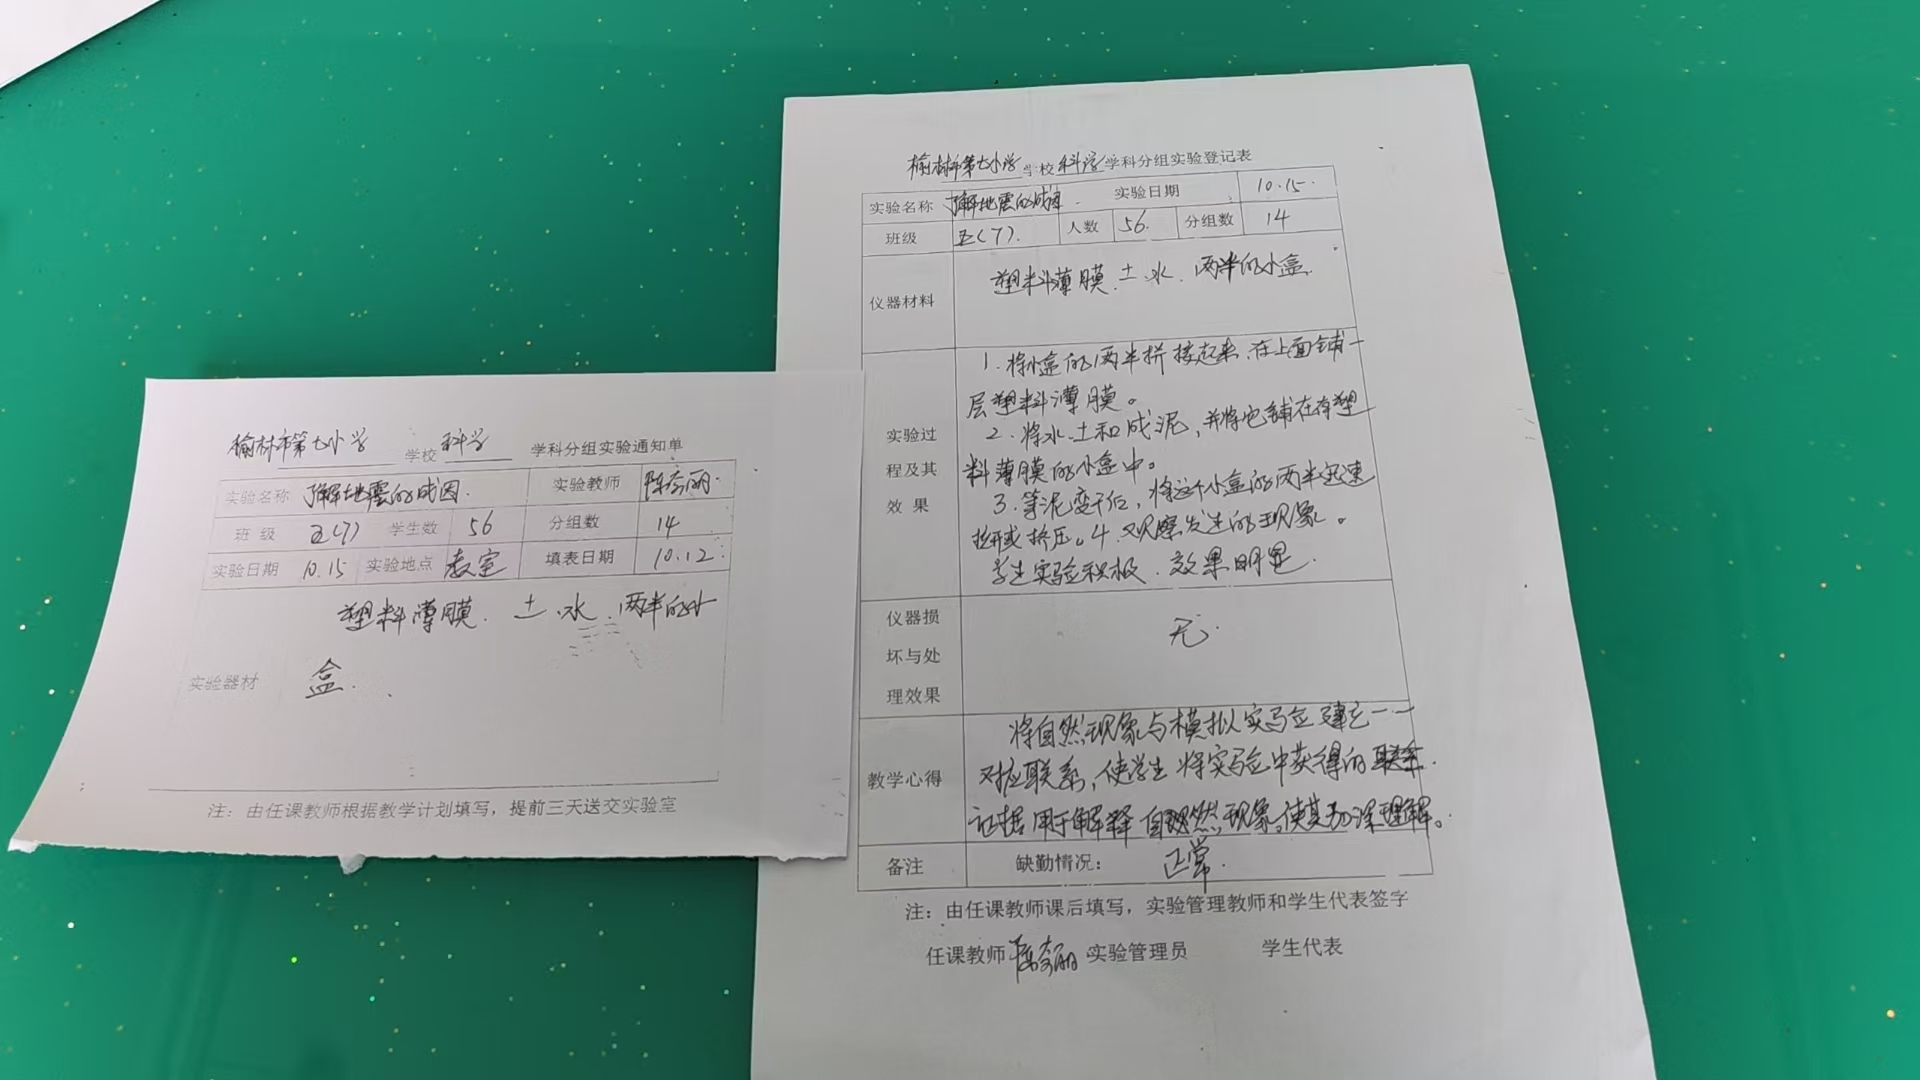 榆林市第七小学 学校 科学 学科分组实验通知单
实验名称 了解地震的成因. 实验教师
班级 五(7) 学生数 56 分组数 14
实验日期 10.15 实验地点 教室 填表日期 10.12
塑料薄膜. 土.水.两半的小
实验器材 盒.
注：由任课教师根据教学计划填写，提前三天送交实验室
榆林市第七小学 学校 科学 学科分组实验登记表
实验名称 了解地震的成因. 实验日期 10.15.
班级 五(7). 人数 56. 分组数 14
仪器材料 塑料薄膜.土.水.两半的小盒.
1.将小盒的两半拼接起来.在上面铺一
层塑料薄膜。
实验过 2.将水.土和成泥，并将它铺在有塑
程及其 料薄膜的小盒中。
效果 3.等泥变干后，将这个小盒的两半迅速
拉开或挤压。4.观察发生的现象。
学生实验积极.效果明显.
仪器损
坏与处 无.
理效果
将自然现象与模拟实验建立一一
教学心得 对应联系，使学生将实验中获得的
证据用于解释自然现象，使其加深理解。
备注 缺勤情况： 正常.
注：由任课教师课后填写，实验管理教师和学生代表签字
任课教师 实验管理员 学生代表